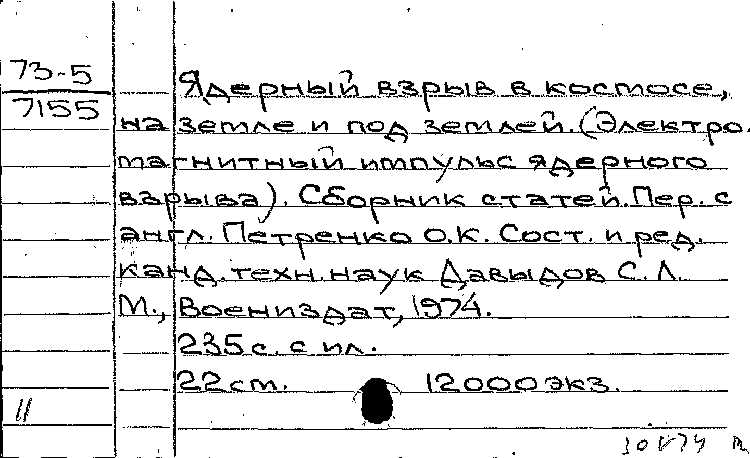 73-5
7155
Ядерный взрыв в космосе,
на земле и под землей. (Электро-
магнитный импульс ядерного
взрыва). Сборник статей. Пер. с
англ. Петренко О.К. Сост. и ред.
канд. техн. наук Давыдов С. Л.
М., Воениздат, 1974.
235 с. с ил.
22 см. 12000 экз.
11